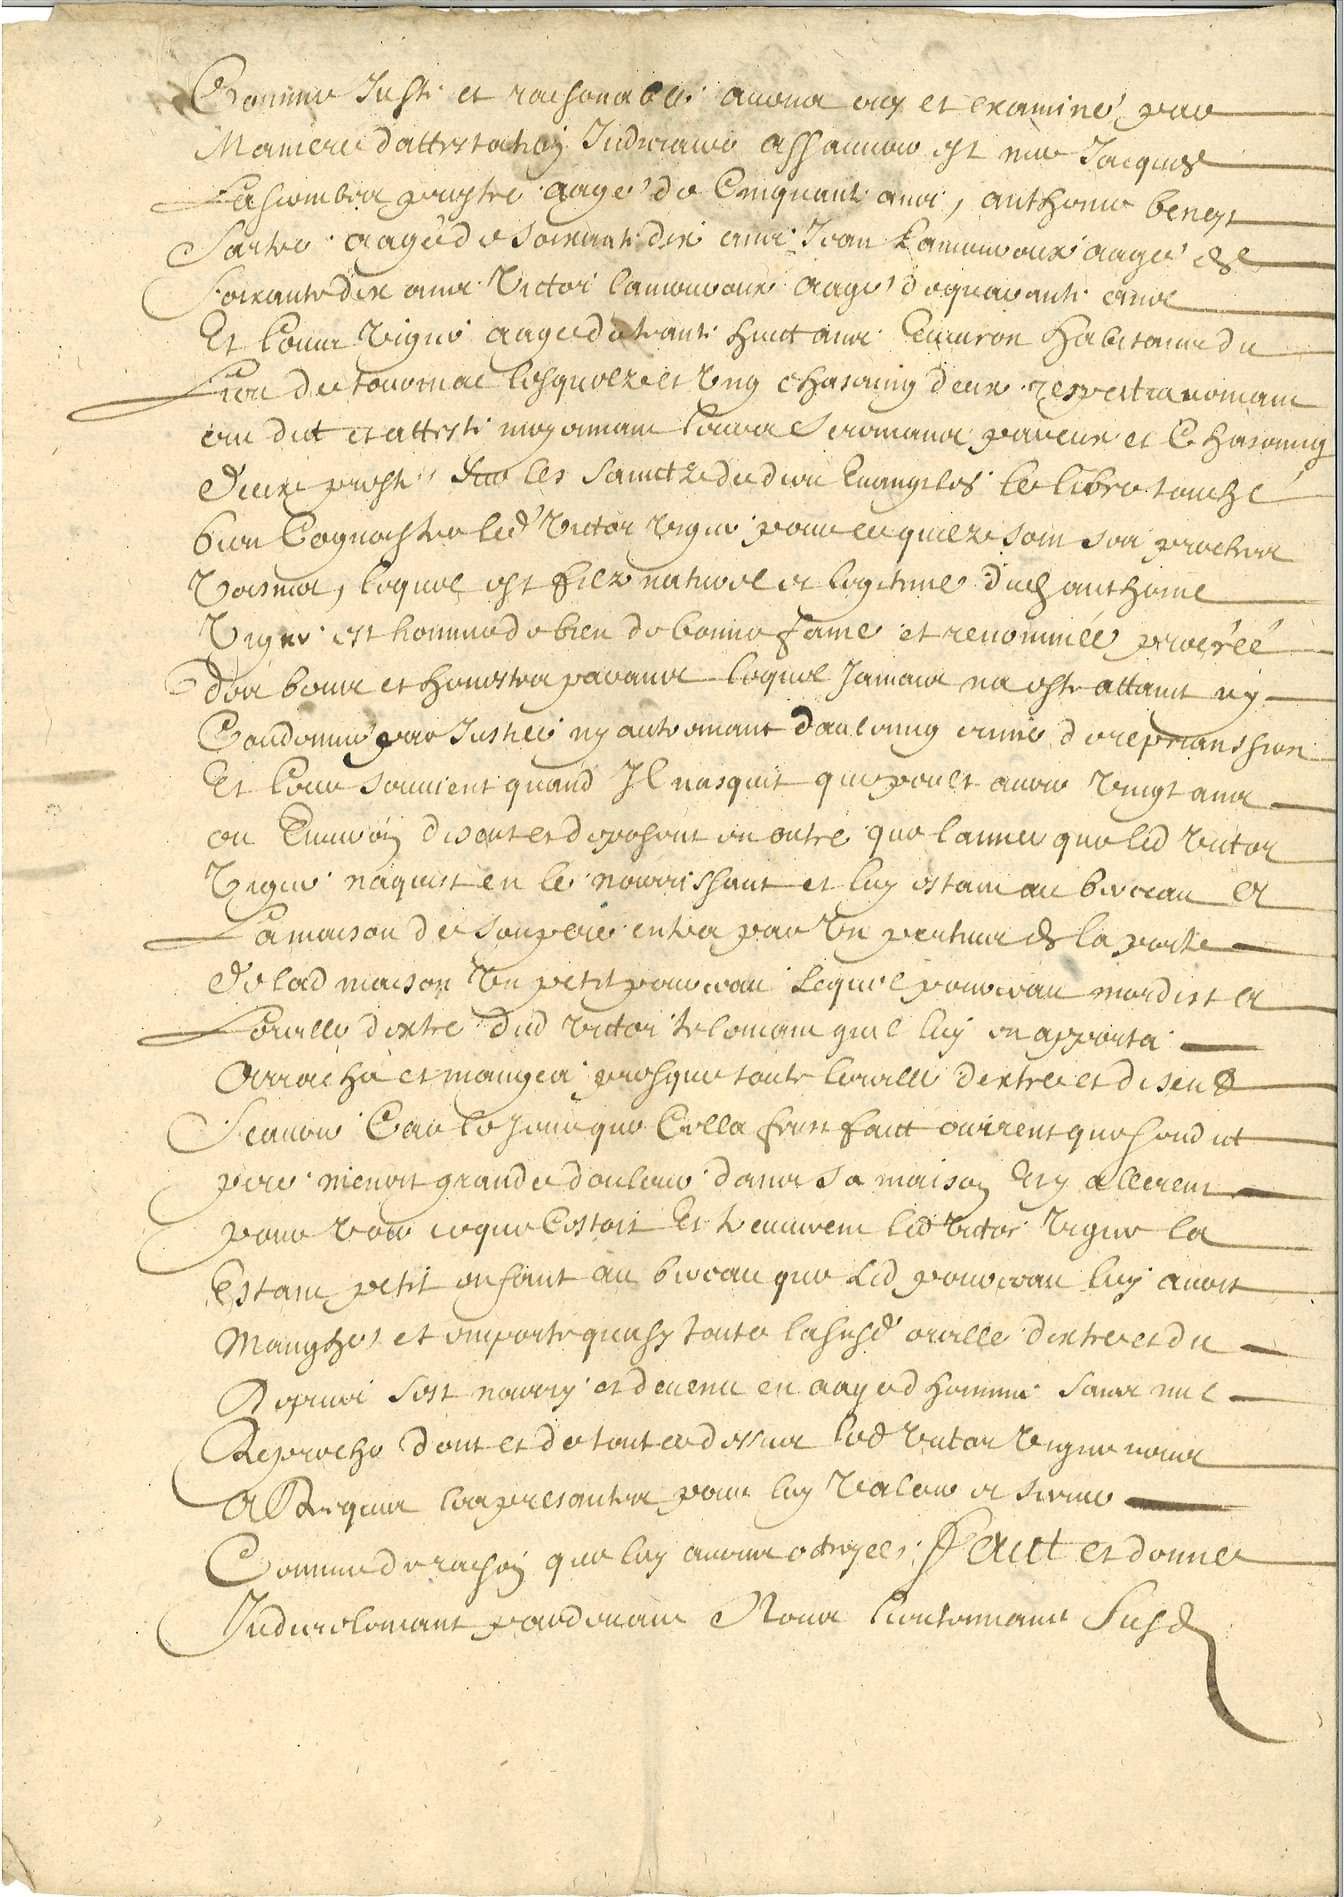 Comme Juste et raisonable avons ouy et examiné par
Maniere dattestation Judiciaire assavoir est me Jacques
prestre aagé de Cinquante ans, anthoine beneyt
aagé de soixante dix ans Jean Lamouroux aagé de
soixante dix ans Victor lamouroux aagé de quarante ans
Et Louis Vigne aage de trante huict ans Environ habitans du
lieu de tournac lesquelz et Ung chascung deux respectivemant
ont dit et atteste moyenant leurs seremans par eux et Chascung
deux preste sur les sainctz de dieu Evangiles le libre touché
bien Cognoistre led Victor Vigne pour ce quilz sont ses proches
Voisins, lequel est filz naturel et legitime dud anthoine
Vigne est homme de bien de bonne fame et renommée procréé
de bons et honestes parans lequel Jamais na este attaint ny
Condamné par Justice ny autremant daulcung crime de reprehansion
Et leur souvient quand Jl nasquit que peult avoir Vingt ans
ou Environ disent et deposent en outre que lannee que led Victor
Vigne naquist en le nourrissant et luy estant au berceau et
La maison de son pere entra par Un pertuis de la porte
de lad maison Un petit pourceau Lequel pourceau mordist et
Loreille dextre dud Victor telemant quil luy en apporta
Arracha et mangea presque toute loreille dextre et disent
Scavoir Car le Jour que Cella feust faict ouirent que sondit
pere menoit grande douleur dans sa maison Et y allerent
pour Voir ce que Cestoit Et treuverent led Victor Vigne la
Estant petit enfant au berceau que Led pourceau luy avoit
Mangé et emporté quasy toute lasusd oreille dextre et du
Depuis sest nourry et devenu en aage dhomme sans nul
Reproche dont et de tout ce dessus led Victor Vigne nous
A Requis les presantes pour luy Valoir et servir
Comme de raison que luy avons octroyées faict et donne
Judicielemant pardevant Nous lieutenant susd